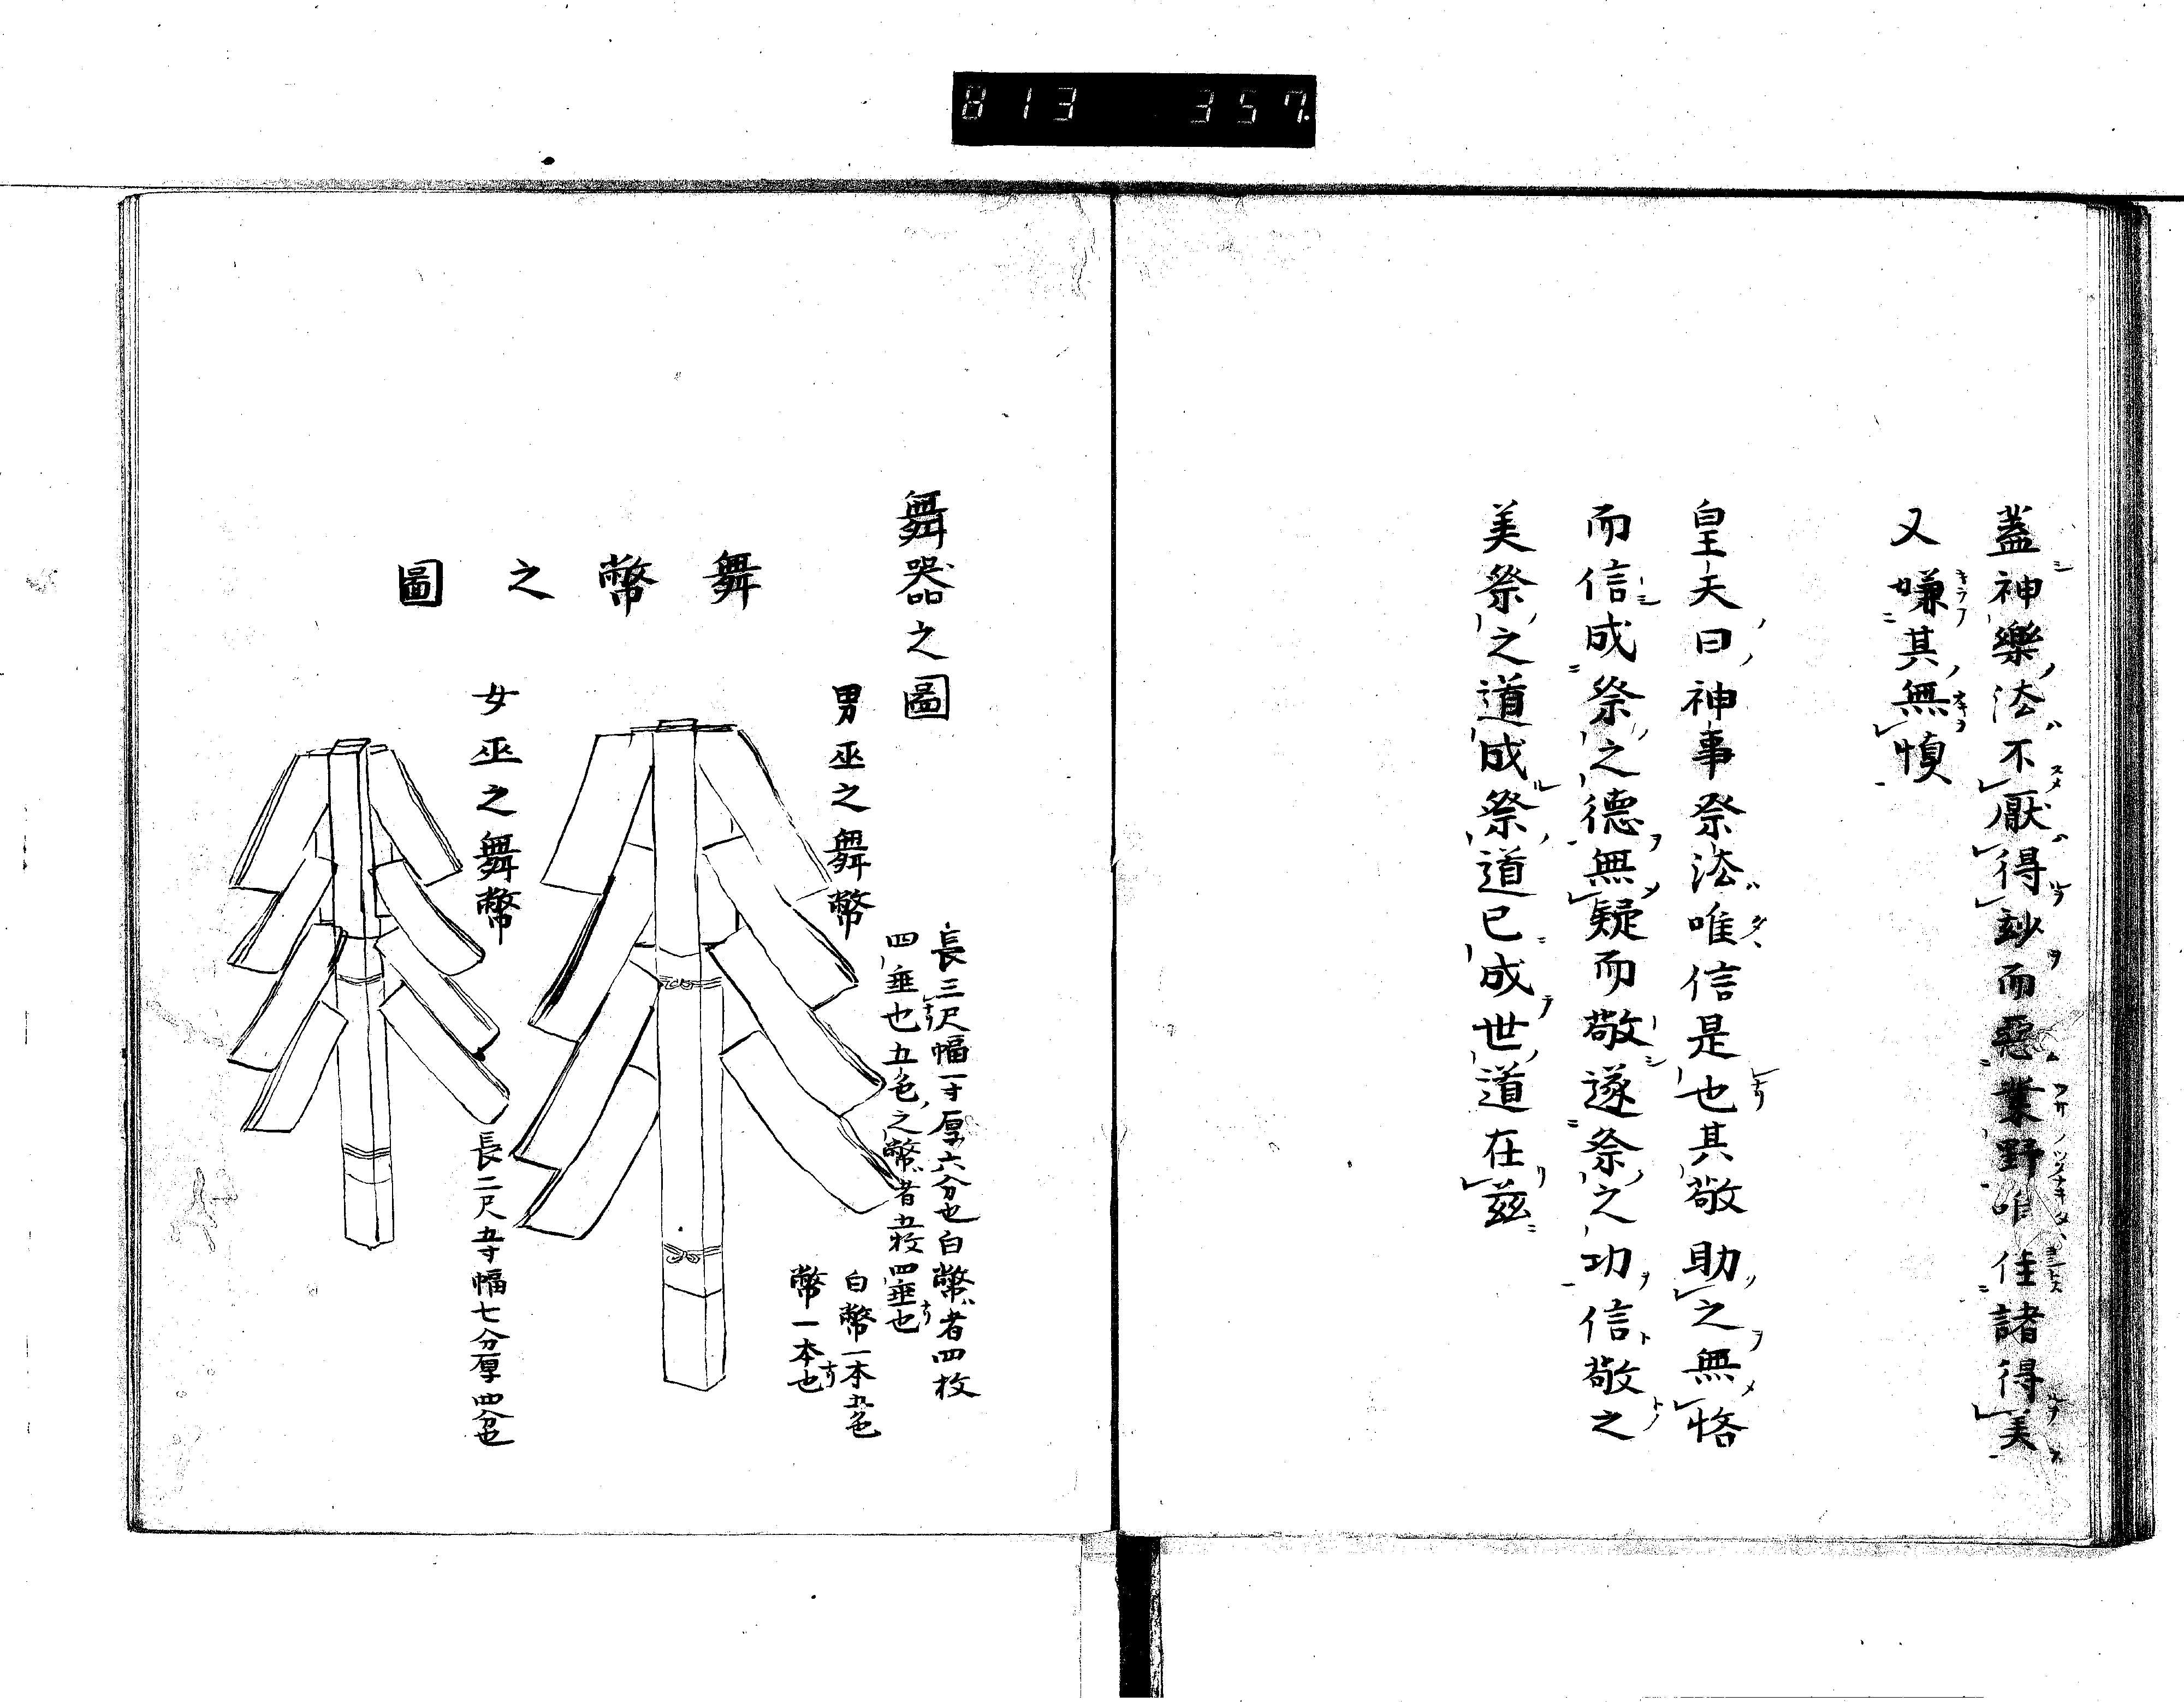 813 357.
蓋神樂法不厭得妙而惡業野唯佳諸得美
又嫌其無愼
皇天曰神事祭法唯信是也其敬助之無恪
而信成祭之德無疑而敬遂祭之功信敬之
美祭之道成祭道已成世道在茲
舞器之圖
舞幣之圖
男巫之舞幣
長三尺幅一寸厚六分也白幣者四枚
四垂也五色之幣者五枚四垂也
白幣一本五色
幣一本也
女巫之舞幣
長二尺五寸幅七分厚四分也